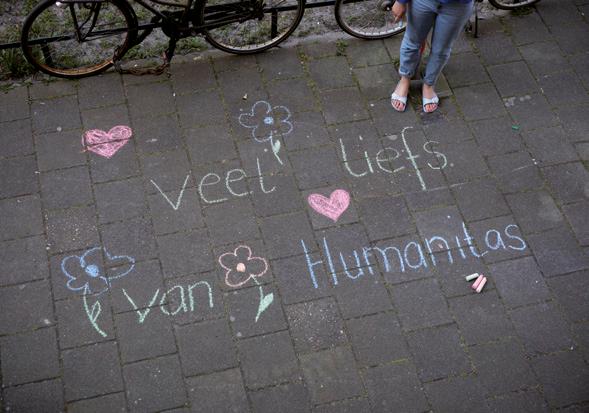 Veel liefs.
Van Humanitas